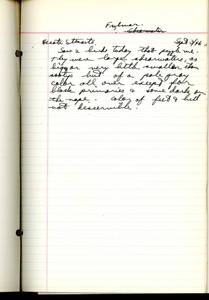 Fulmar.
Shearwater
Hecate Straits Sept
Saw 2 birds today that puzzle me.
They were large shearwaters, as
bigger very little smaller than
sootys but of a pale gray
color all over except for
black primaries & some dark on
the nape. Color of feet & bill
not discernible.